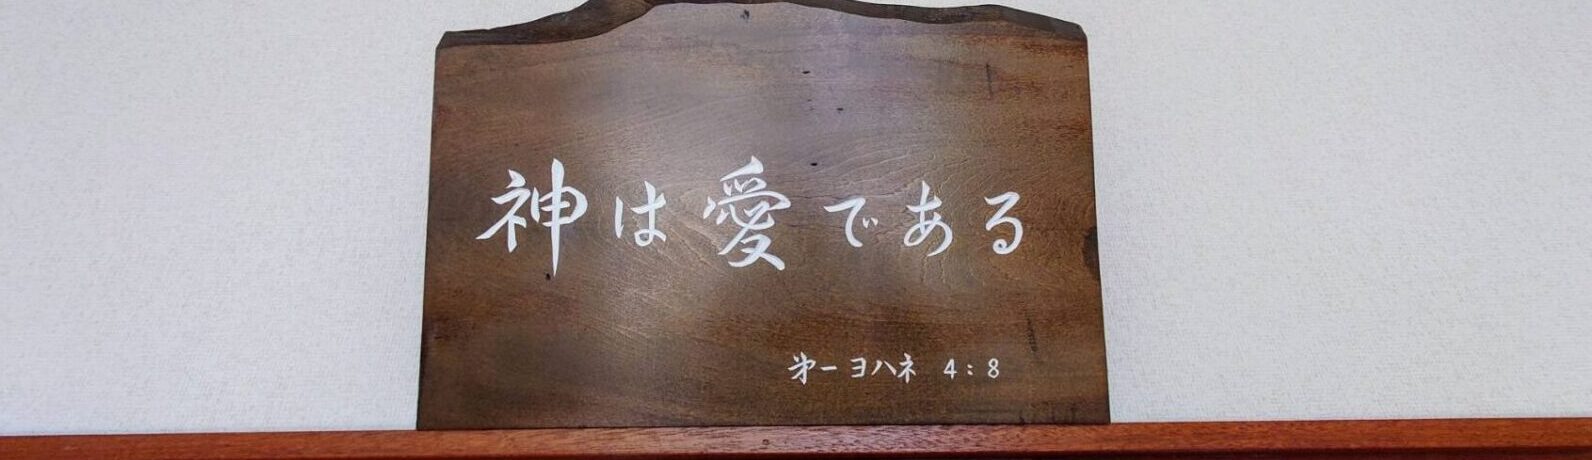 神は愛である
第一ヨハネ 4:8